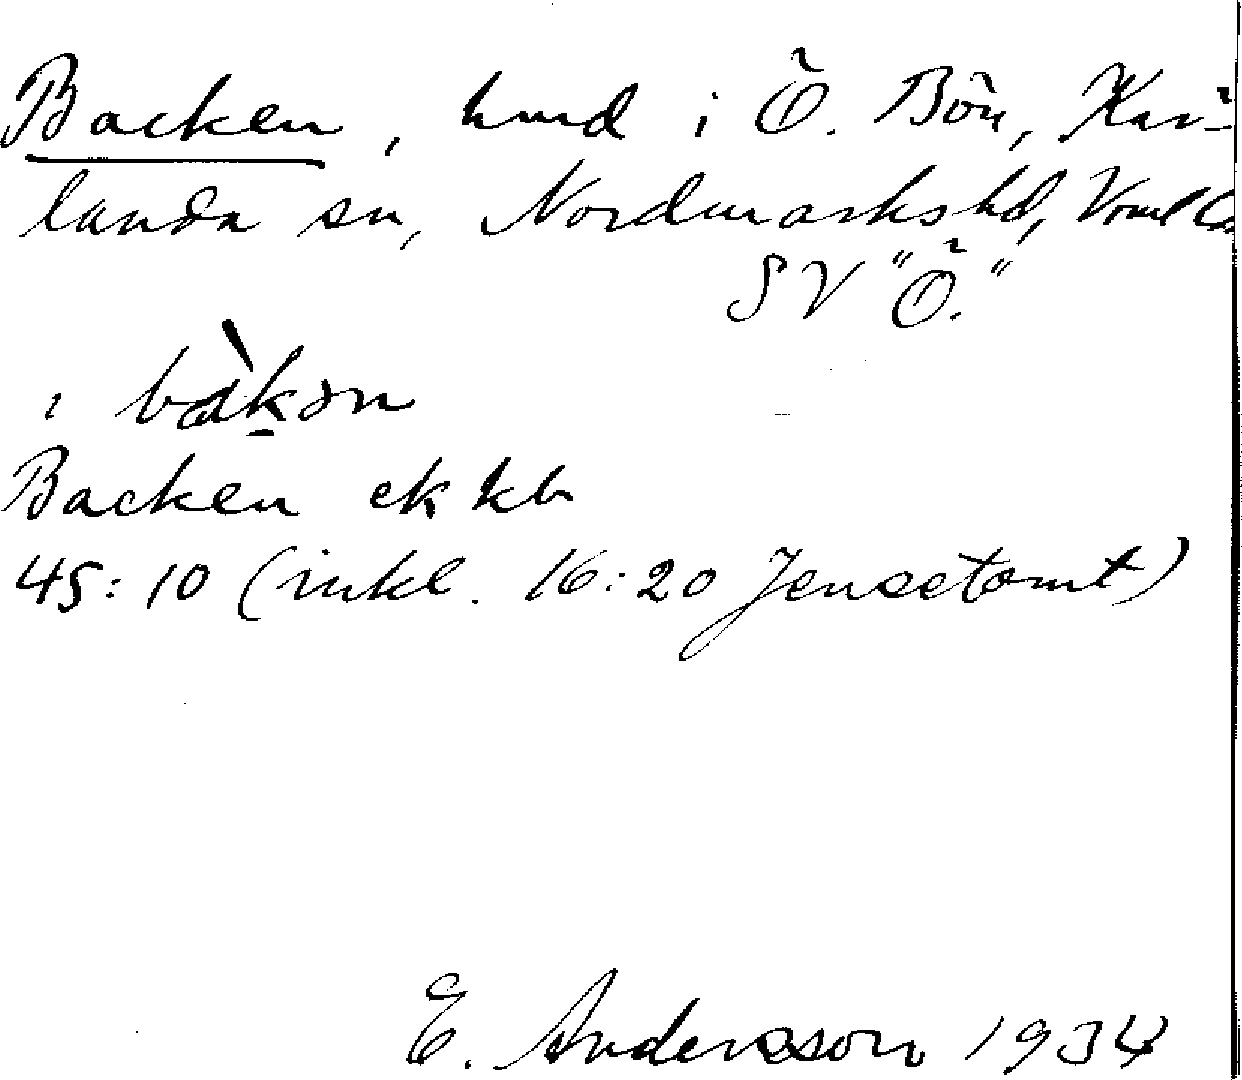 Backen, hmd i Ö. Bön, Kar-
landa sn, Nordmarkshd, Vrml
SV "Ö."
i bàkən
Backen ek kb
45:10 (inkl. 16:20 Jensetomt)
E. Andersson 1934